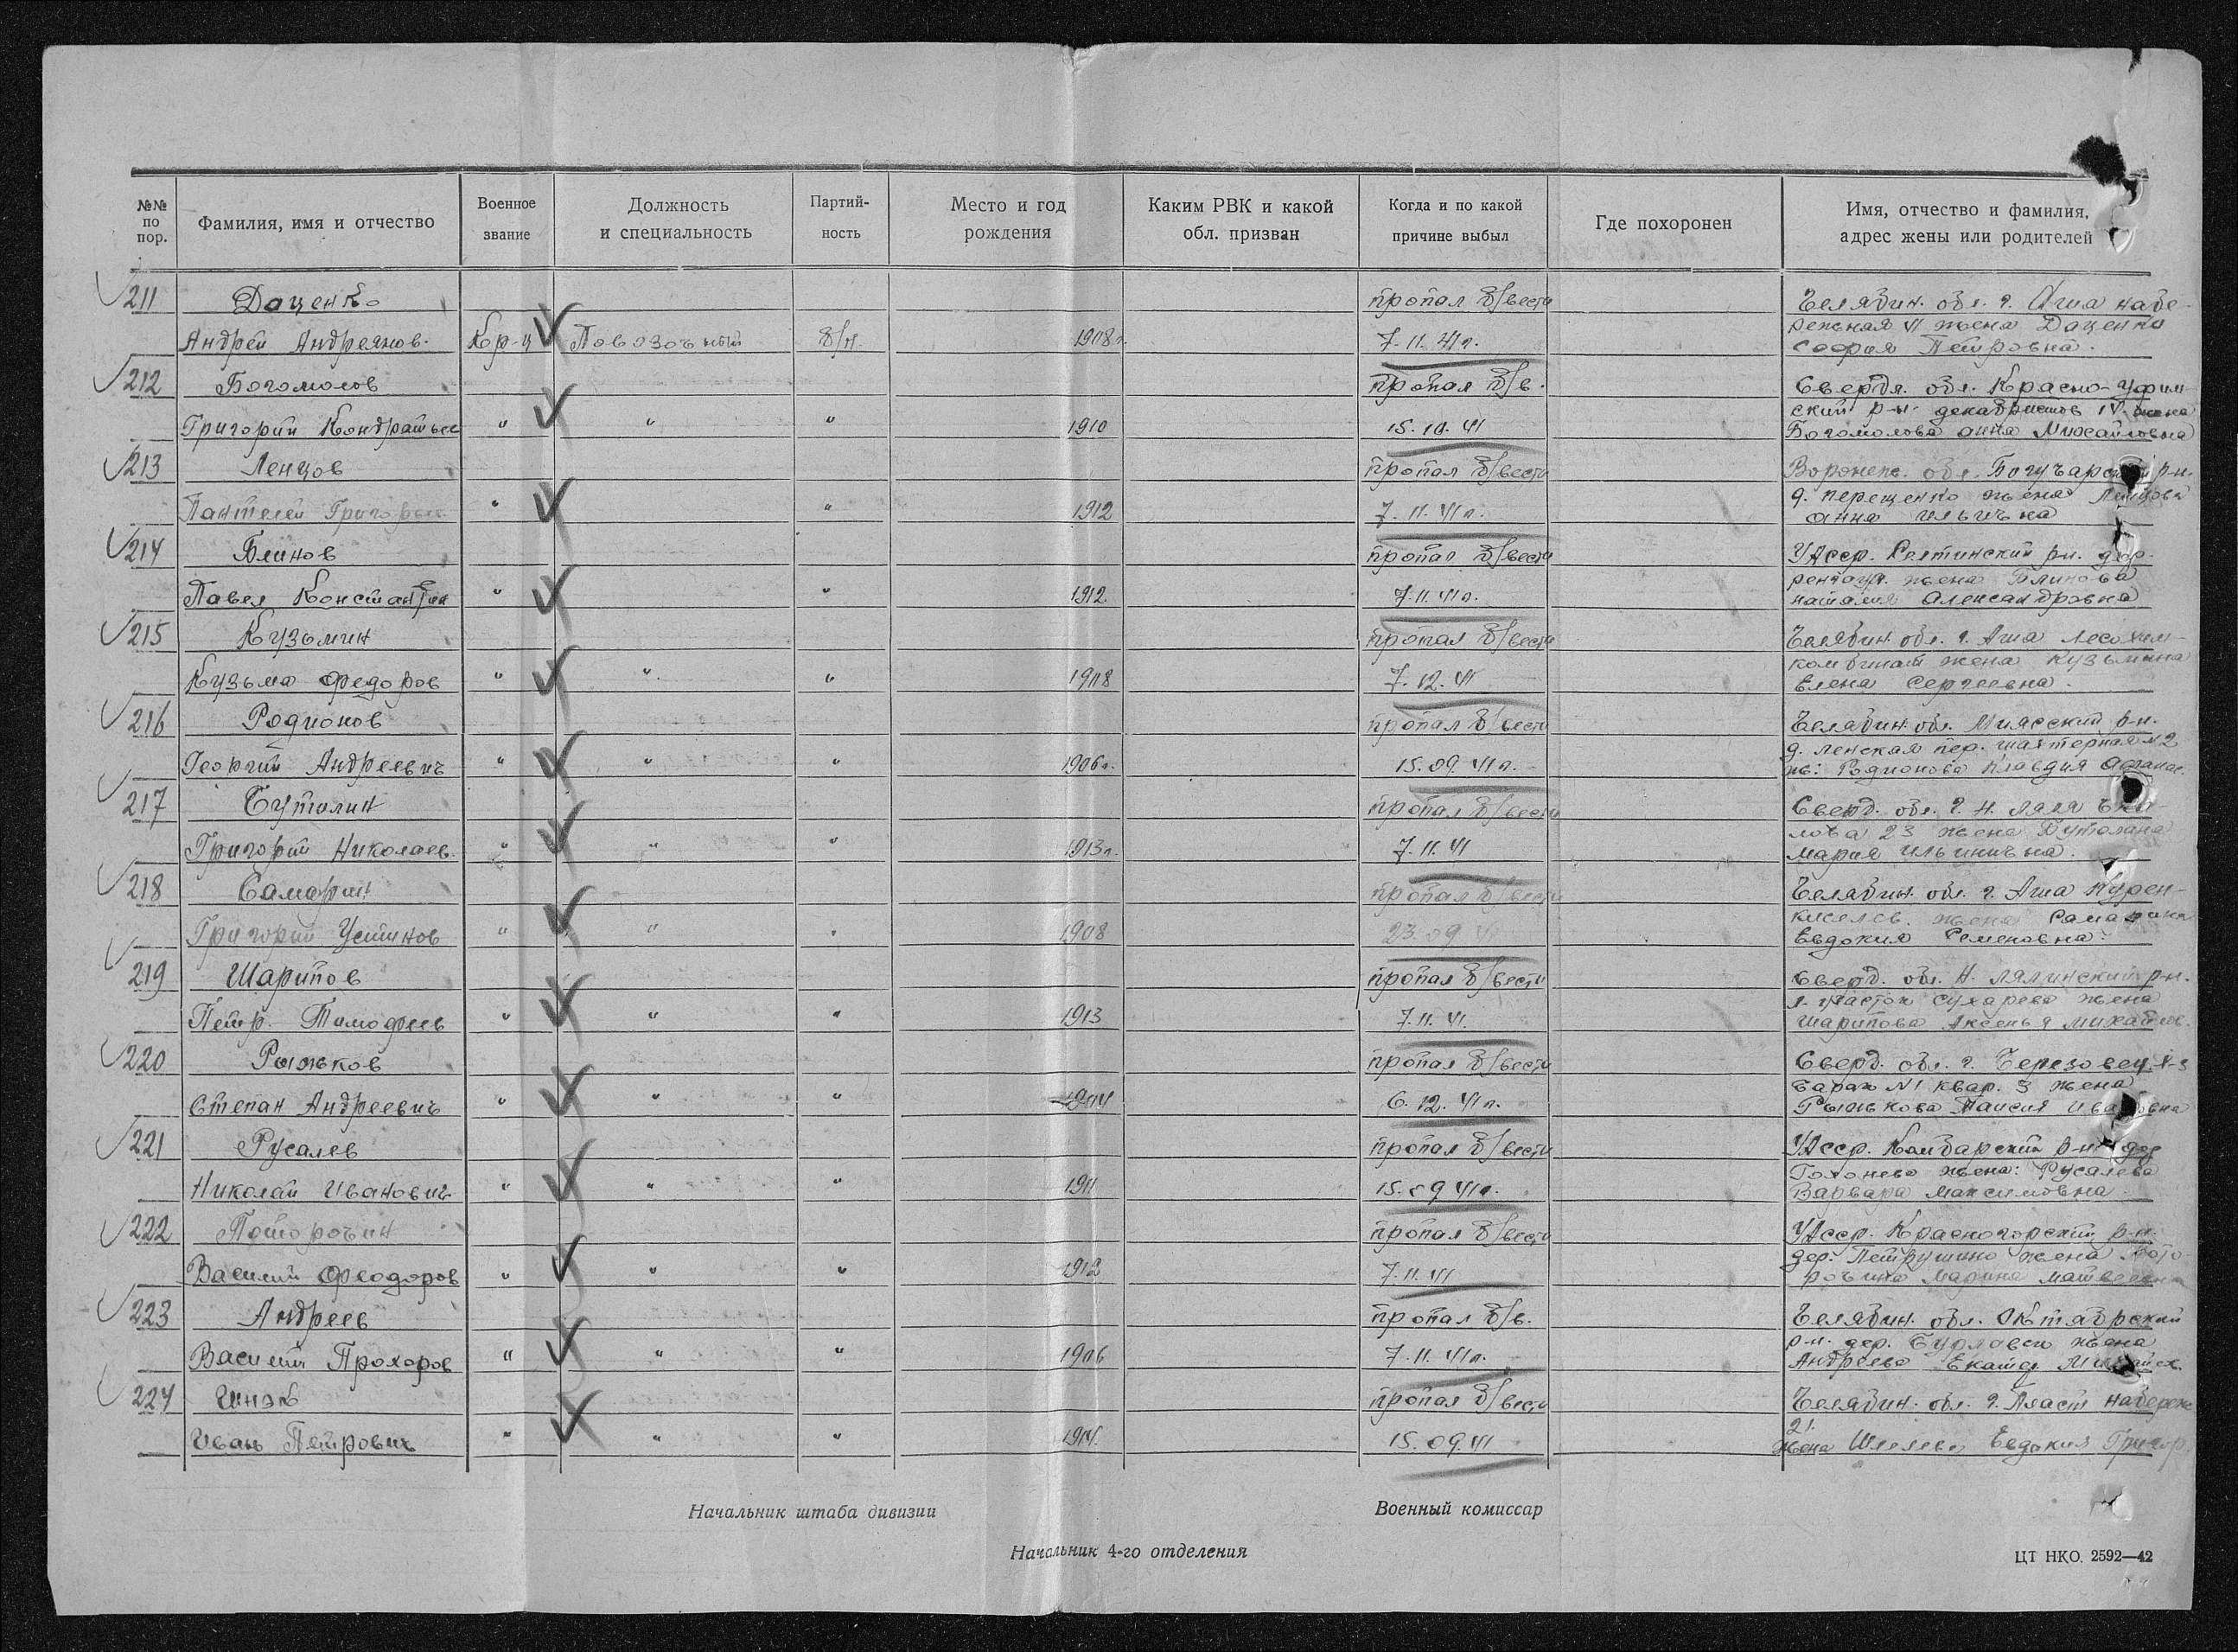 №№ по пор.
Фамилия, имя и отчество
Военное звание
Должность и специальность
Партий-ность
Место и год рождения
Каким РВК и какой обл. призван
Когда и по какой причине выбыл
Где похоронен
Имя, отчество и фамилия, адрес жены или родителей
211 Даценко пропал б/вести Челябин. обл. г. Аша набе-
режная VI жена Даценко
Андрей Андреянов. Кр-ц Повозочный б/п. 1908г. 7.11.41г.
София Петровна.
212 Богомолов пропал б/в. Свердл. обл. Красно-уфим-
ский р-н. декабристов жена
Григорий Кондратьев " " " 1910 15.10.41
Богомолова Анна Михайловна
213 Ленцов пропал б/вести Воронеж. обл. Богучарский р-н.
д. Перещенко жена Ленцова
Пантелей Григорьев " " 1912 7.11.41г.
Анна Ильична
214 Блинов пропал б/вести УАсср. Селтинский рн. дер.
жена Блинова
Павел Константин " " 1912 7.11.41г.
Наталия Александровна
215 Кузьмин пропал б/вести Челябин. обл. г. Аша Лесохим-
комбинат жена Кузьмина
Кузьма Федоров " " " 1908 7.12.41
Елена Сергеевна.
216 Родионов пропал б/вести Челябин. обл. Миясский р-н.
д. Ленская пер. шахтерная №2
Георгий Андреевич " " " 1906г. 15.09.41г.
ж: Родионова Клавдия Афанас.
217 Бутолин пропал б/вести Сверд. обл. г. Н. Ляля Чка-
лова 23 жена Бутолина
Григорий Николаев. " " " 1913г. 7.11.41
Мария Ильинична.
218 Самарин пропал б/вести Челябин. обл. г. Аша Курен-
жена Самарина
Григорий Устинов " " " 1908 23.09.41
Евдокия Семеновна.
219 Шарипов пропал б/вести Сверд. обл. Н. Лялинский р-н.
участок Сухарева жена
Петр. Тимофеев " " " 1913 7.11.41.
Шарипова Аксенья Михайлов.
220 Рыжков пропал б/вести Сверд. обл. г.
Барак №1 квар. 3 жена
Степан Андреевич " " " 1904 6.12.41г.
Рыжкова Таисия Ивановна
221 Русалев пропал б/вести УАсср. р-н дер
жена: Русалева
Николай Иванович " " " 1911 15.09.41г.
Варвара Максимовна
222 Поторочин пропал б/вести УАсср. Красногорский р-н.
дер. Петрушино жена Пото-
Василий Феодоров " " " 1912 7.11.41
рочина Марина Матвеевна
223 Андреев пропал б/в. Челябин. обл. Октябрьский
р-н. дер. жена
Василий Прохоров " " " 1906 7.11.41г.
Андреева Екатер. Михайл.
224 пропал б/вести Челябин. обл. г. Пласт Набереж
21.
Иван Петрович " " " 1914. 15.09.41
жена Евдокия Григор.
Начальник штаба дивизии
Военный комиссар
Начальник 4-го отделения
ЦТ НКО. 2592—42